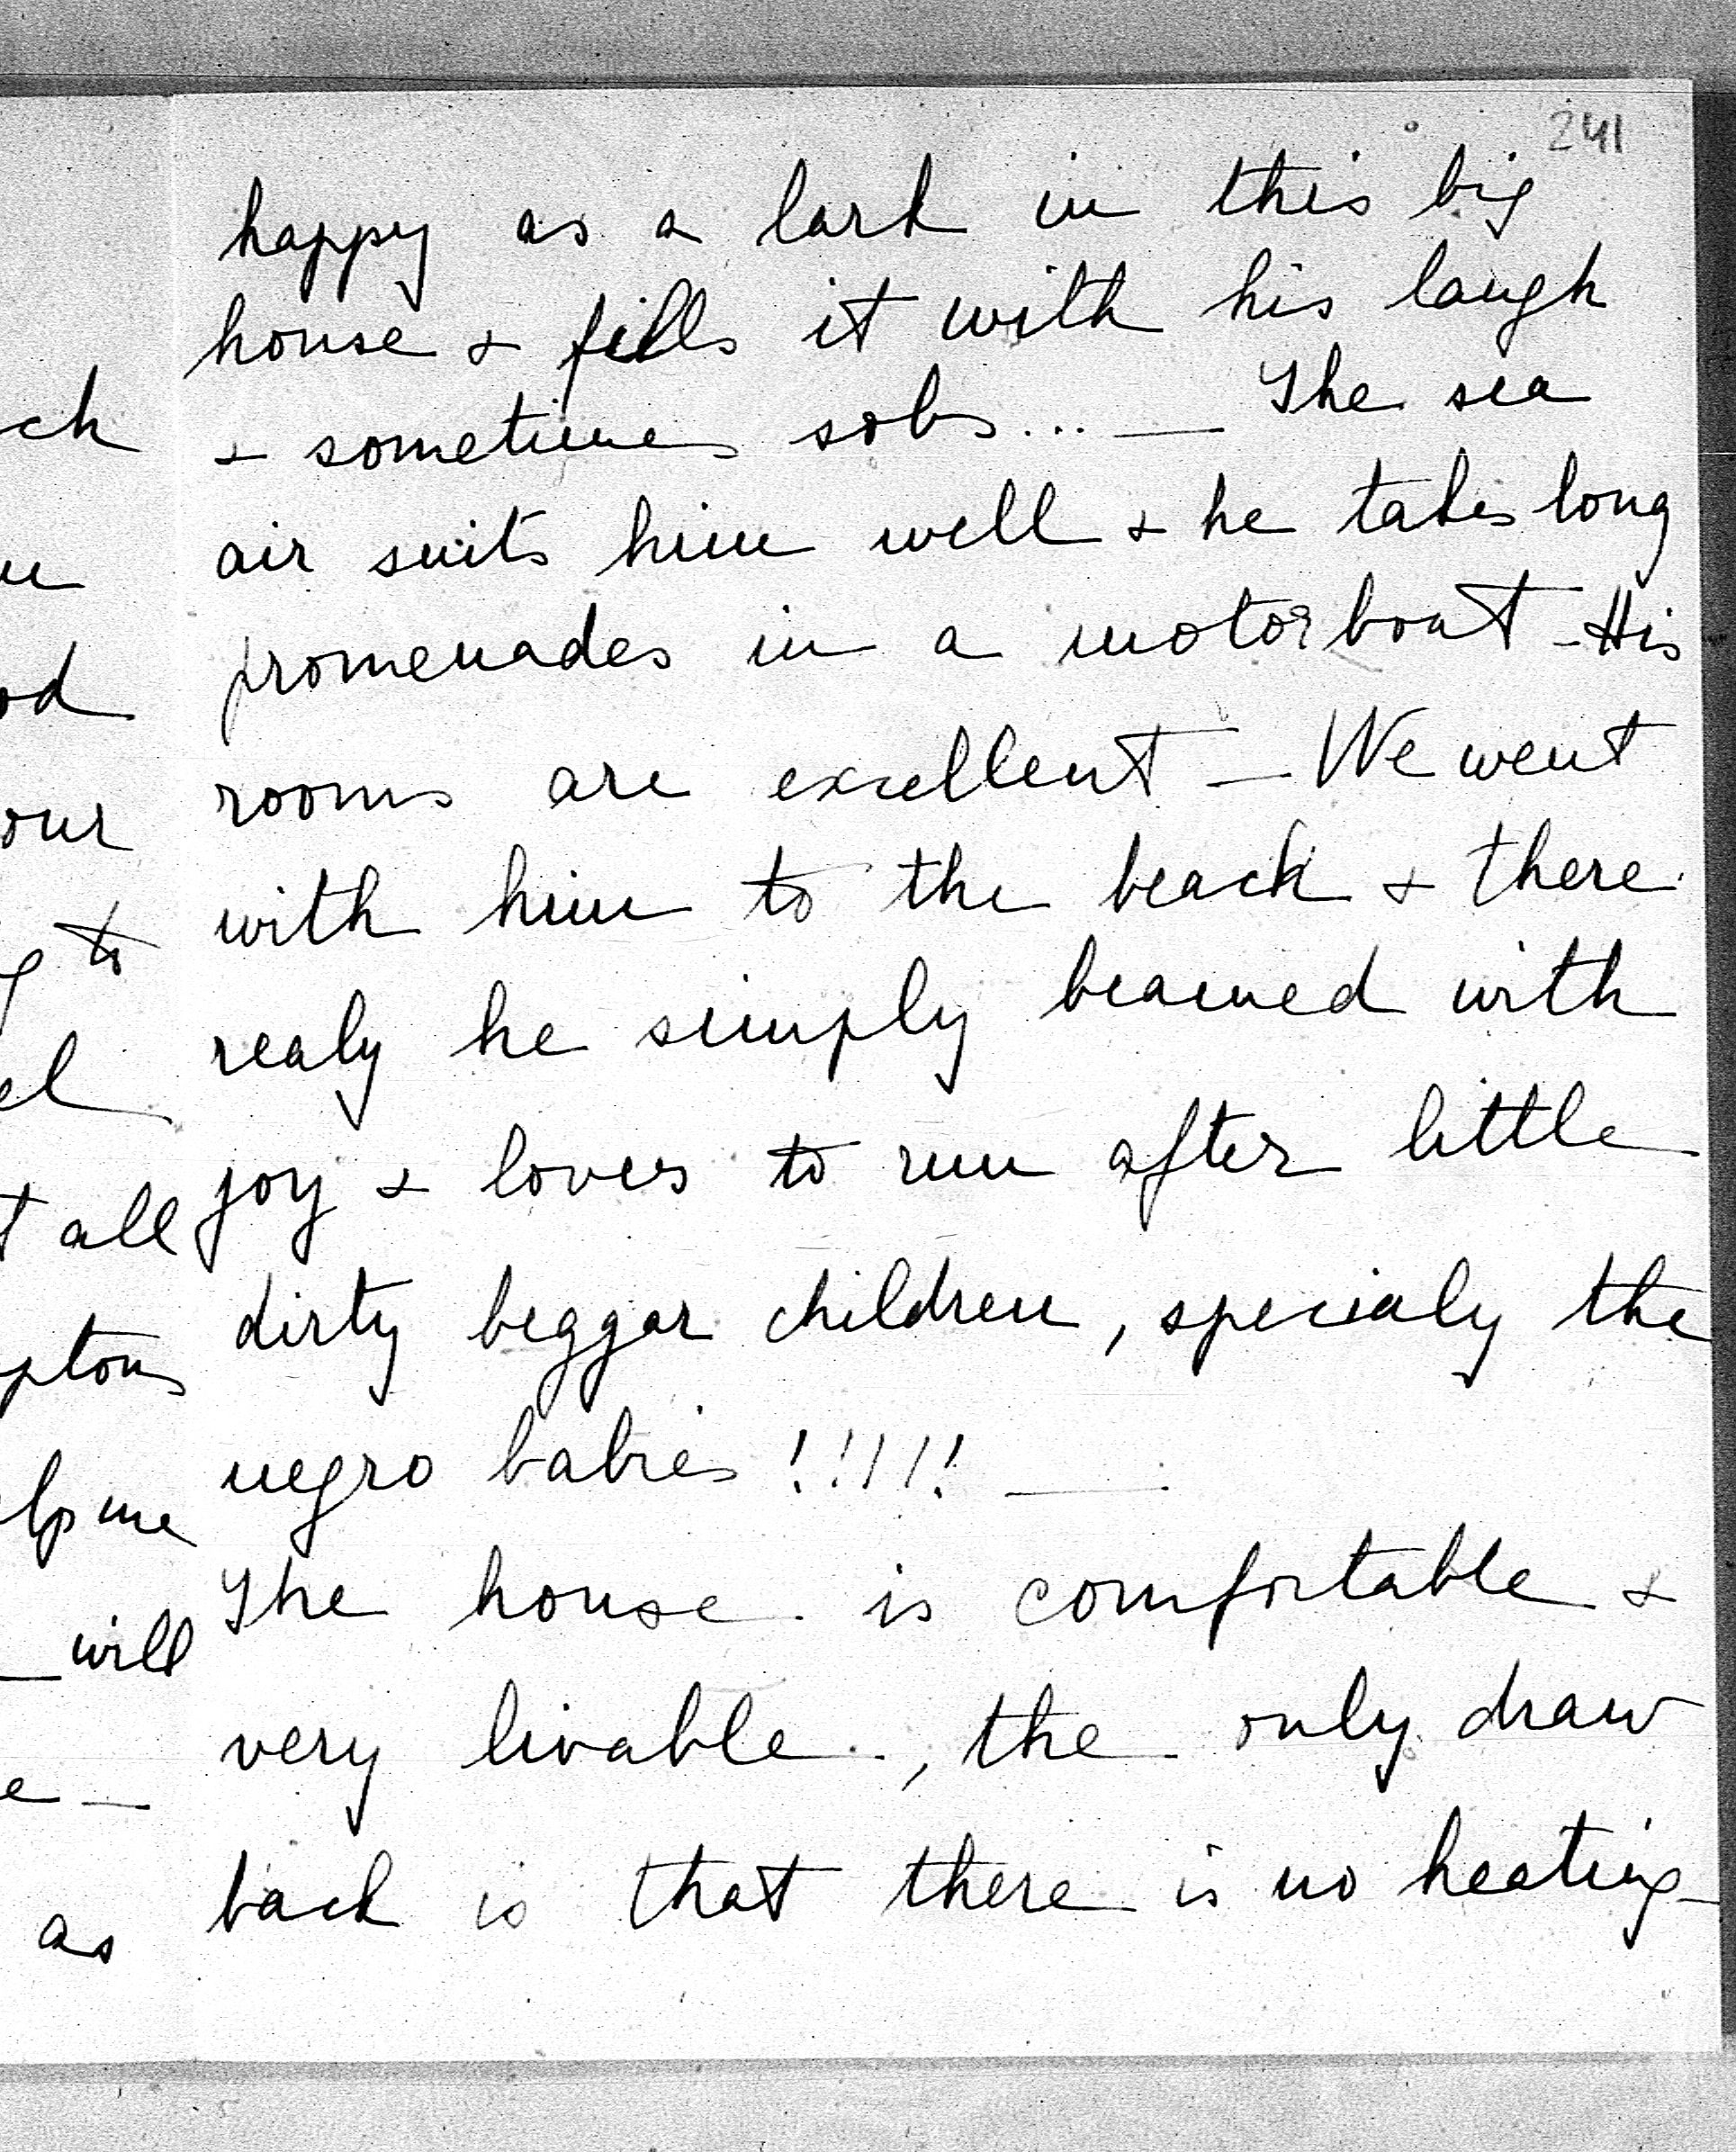 241
happy as a lark in this big
house & fills it with his laugh
& sometimes sobs... — The sea
air suits him well & he takes long
promenades in a motorboat – His
rooms are excellent – We went
with him to the beach & there
realy he simply beamed with
joy & loves to run after little
dirty beggar children, specialy the
negro babies !!!!!! —
The house is comfortable &
very livable, the only draw
back is that there is no heating
ch
od
our
to
el
all
ptons
me
— will
e —
as